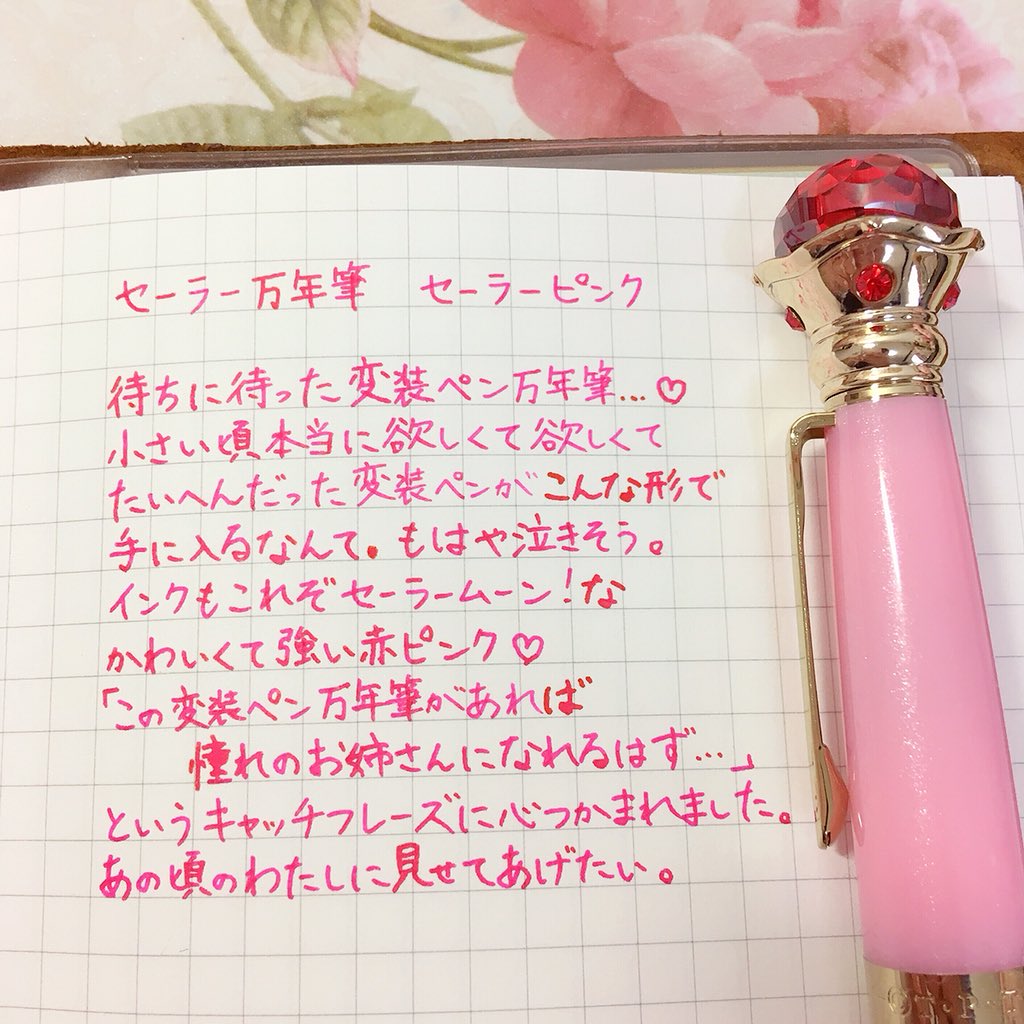 セーラー万年筆　セーラーピンク
待ちに待った変装ペン万年筆…♡
小さい頃本当に欲しくて欲しくて
たいへんだった変装ペンがこんな形で
手に入るなんて。もはや泣きそう。
インクもこれぞセーラームーン！な
かわいくて強い赤ピンク♡
「この変装ペン万年筆があれば
憧れのお姉さんになれるはず…」
というキャッチフレーズに心つかまれました。
あの頃のわたしに見せてあげたい。